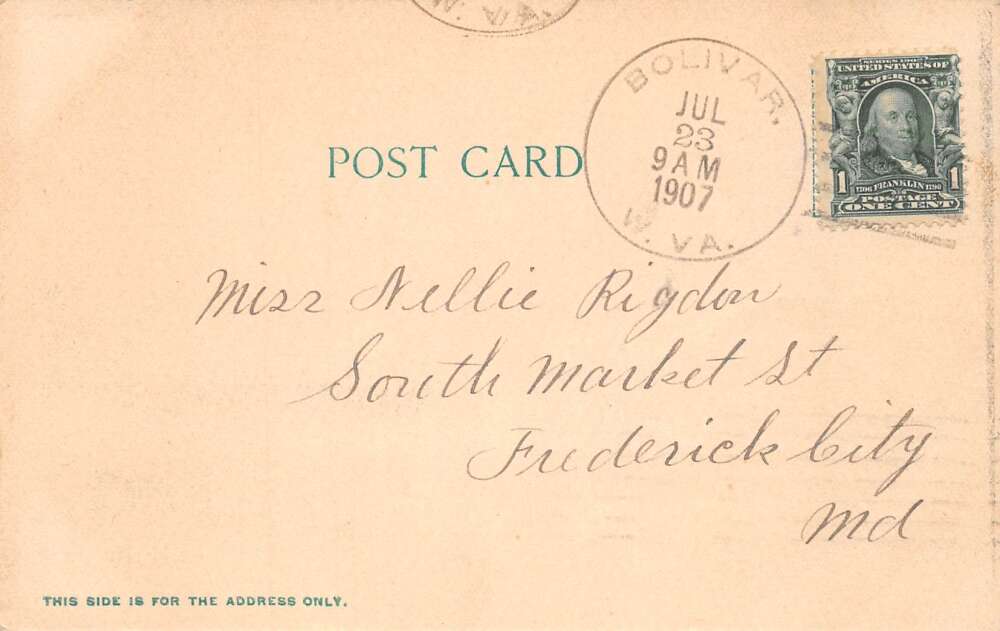 BOLIVAR,
JUL
23
9 AM
1907
W. VA.
SERIES 1902
UNITED STATES OF
AMERICA
1 1706 FRANKLIN 1790 1
POSTAGE
ONE CENT
POST CARD
Miss Nellie Rigdon
South Market St
Frederick City
Md
THIS SIDE IS FOR THE ADDRESS ONLY.